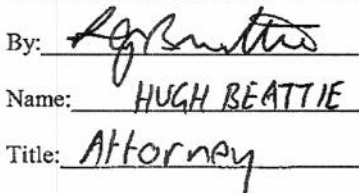 By:
Name: HUGH BEATTIE
Title: Attorney